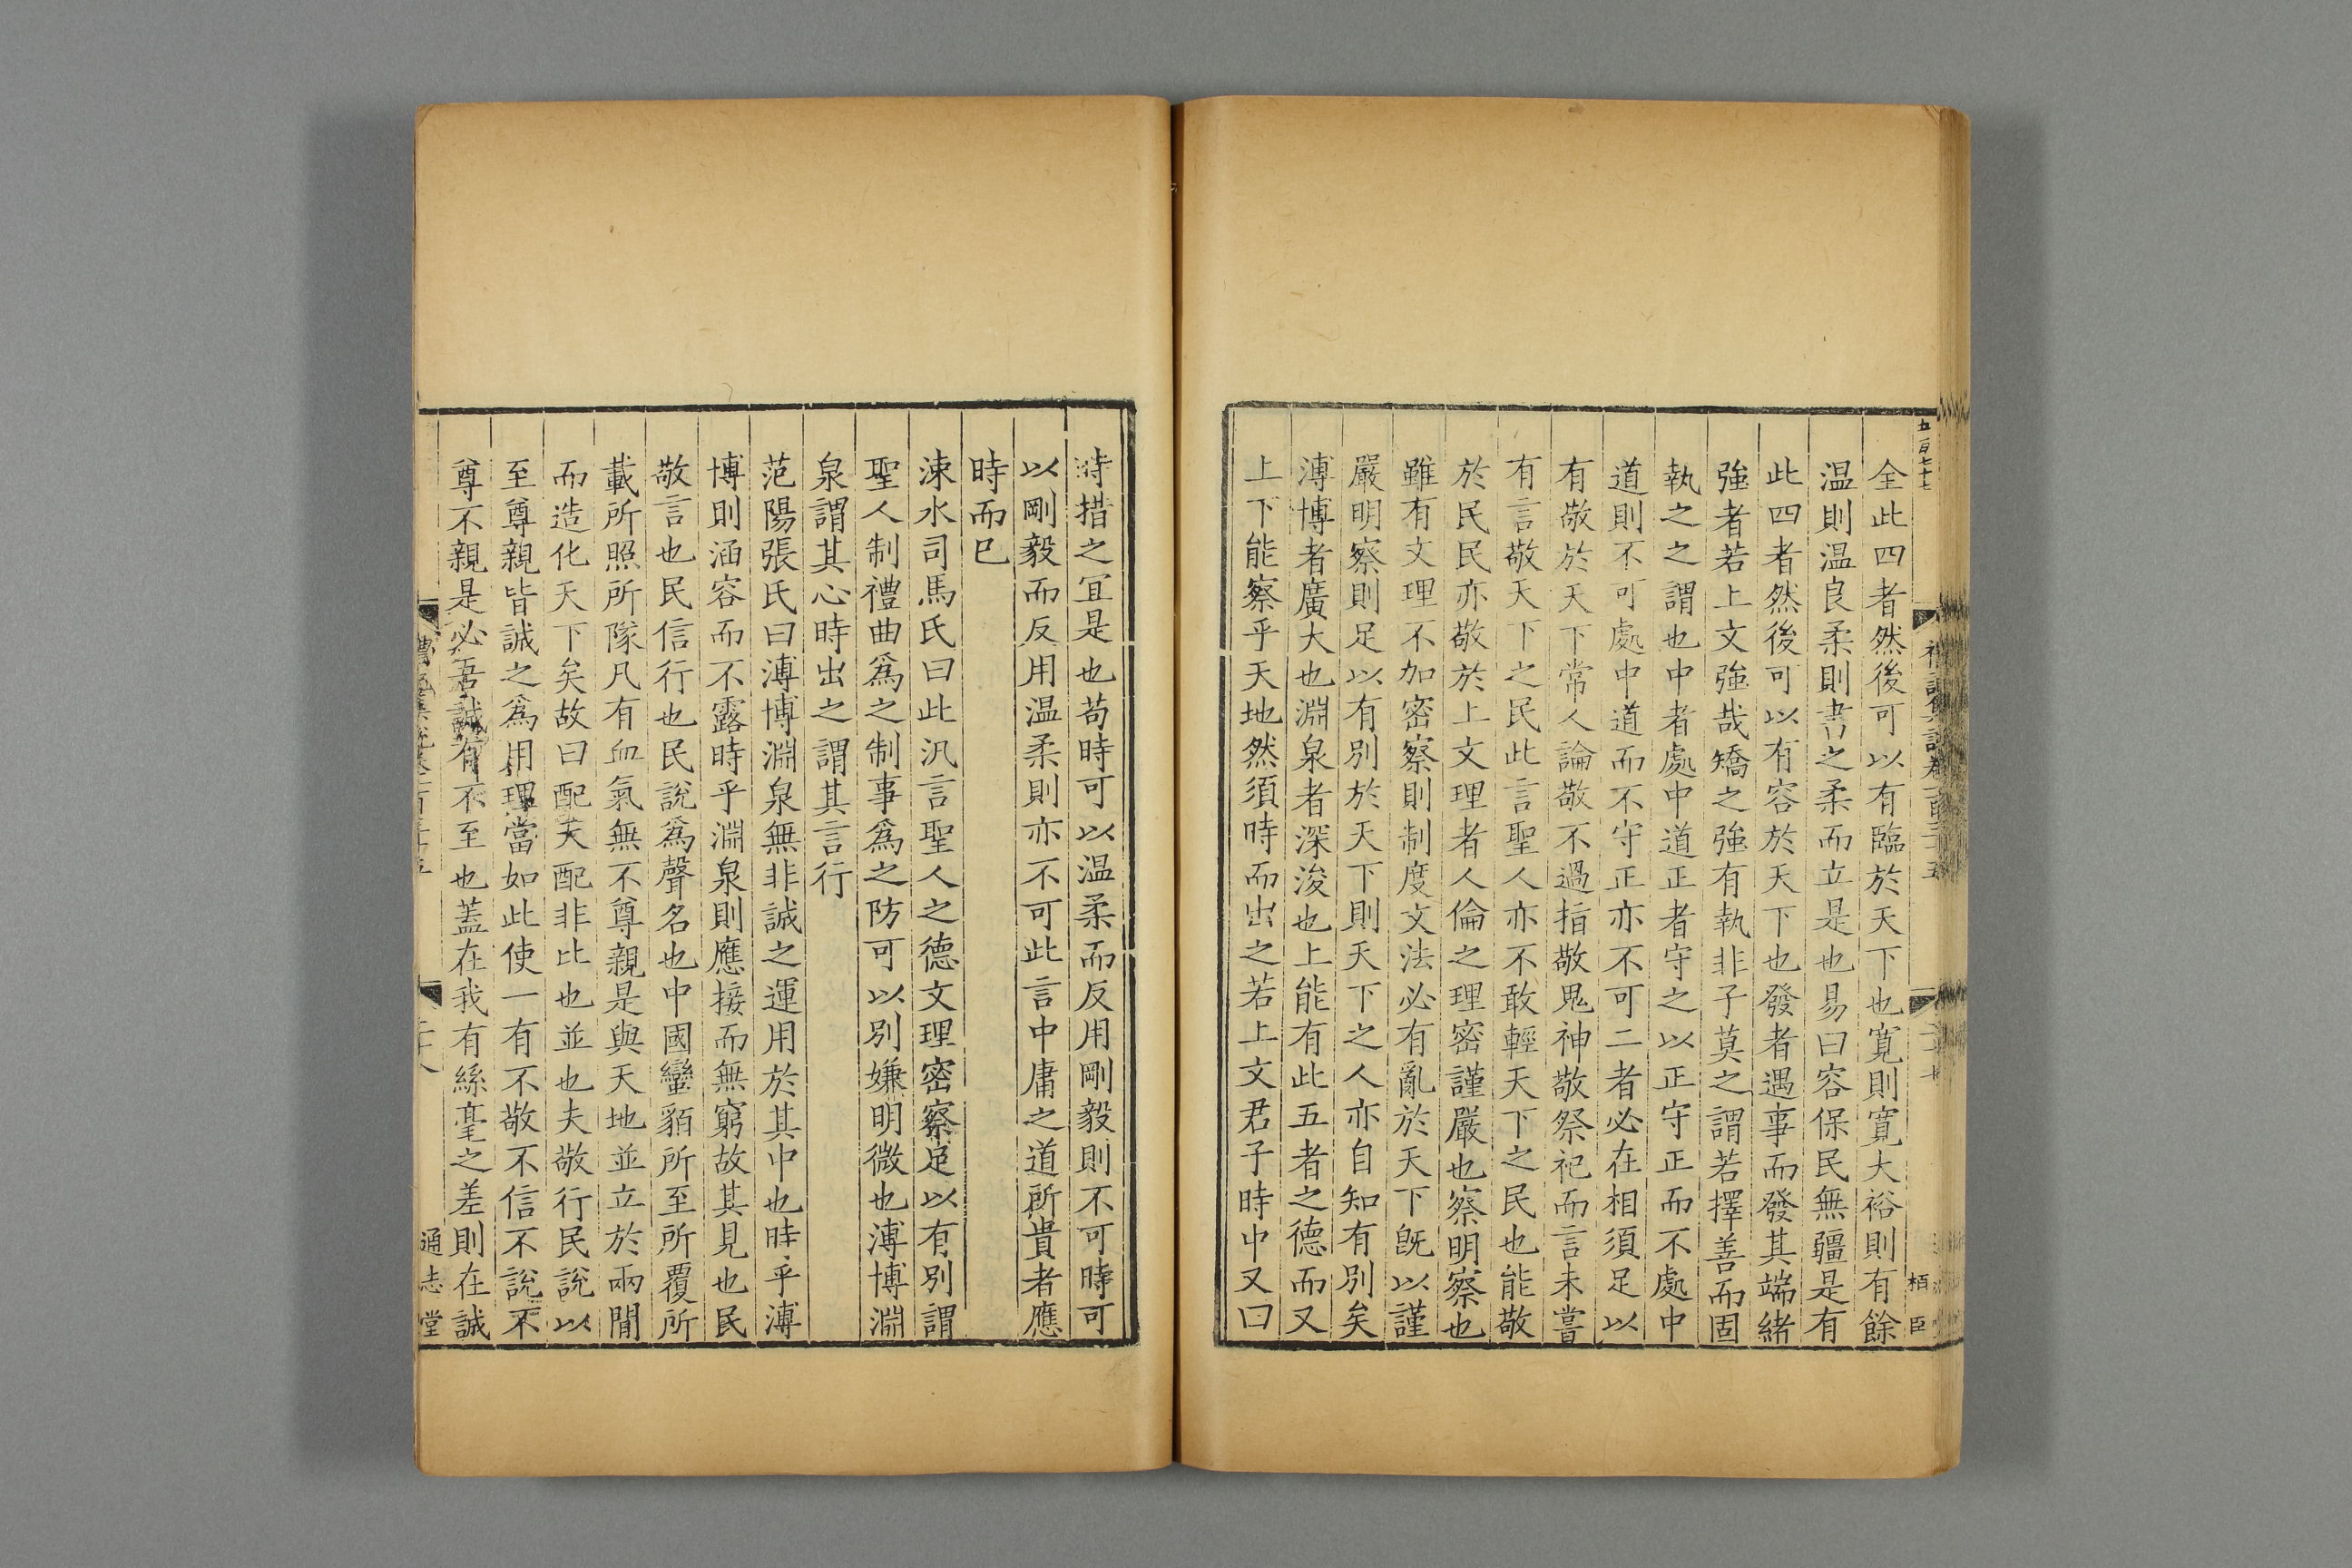 五百七十七
全此四者然後可以有臨於天下也寬則寬大裕則有餘
温則温良柔則書之柔而立是也易曰容保民無疆是有
此四者然後可以有容於天下也發者遇事而發其端緒
強者若上文強哉矯之強有執非子莫之謂若擇善而固
執之之謂也中者處中道正者守之以正守正而不處中
道則不可處中道而不守正亦不可二者必在相須足以
有敬於天下常人論敬不過指敬鬼神敬祭祀而言未嘗
有言敬天下之民此言聖人亦不敢輕天下之民也能敬
於民民亦敬於上文理者人倫之理密謹嚴也察明察也
雖有文理不加密察則制度文法必有亂於天下旣以謹
嚴明察則足以有別於天下則天下之人亦自知有別矣
溥博者廣大也淵泉者深浚也上能有此五者之德而又
上下能察乎天地然須時而出之若上文君子時中又曰
時措之宜是也苟時可以温柔而反用剛毅則不可時可
以剛毅而反用温柔則亦不可此言中庸之道所貴者應
時而已
涑水司馬氏曰此汎言聖人之德文理密察足以有別謂
聖人制禮曲爲之制事爲之防可以別嫌明微也溥博淵
泉謂其心時出之謂其言行
范陽張氏曰溥博淵泉無非誠之運用於其中也時乎溥
博則涵容而不露時乎淵泉則應接而無窮故其見也民
敬言也民信行也民說爲聲名也中國蠻貊所至所覆所
載所照所隊凡有血氣無不尊親是與天地並立於兩閒
而造化天下矣故曰配天配非比也並也夫敬行民說以
至尊親皆誠之爲用理當如此使一有不敬不信不說不
尊不親是必吾誠有不至也蓋在我有絲毫之差則在誠
通志堂